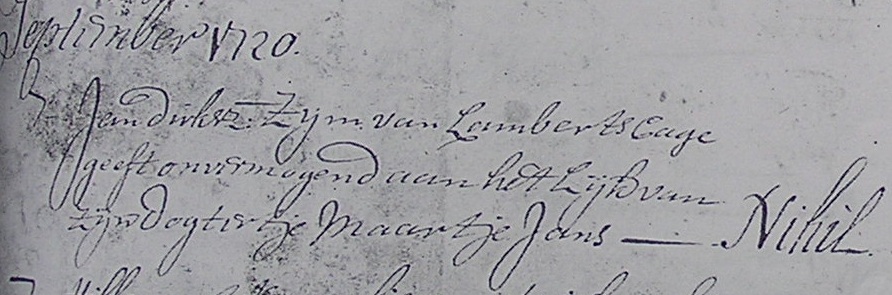 September 1720.
Jan dirksz: Zijm. van Lamberts Cage
geeft onvermogend aan het Lijk van
zijn Dogtertje Maartje Jans — Nihil